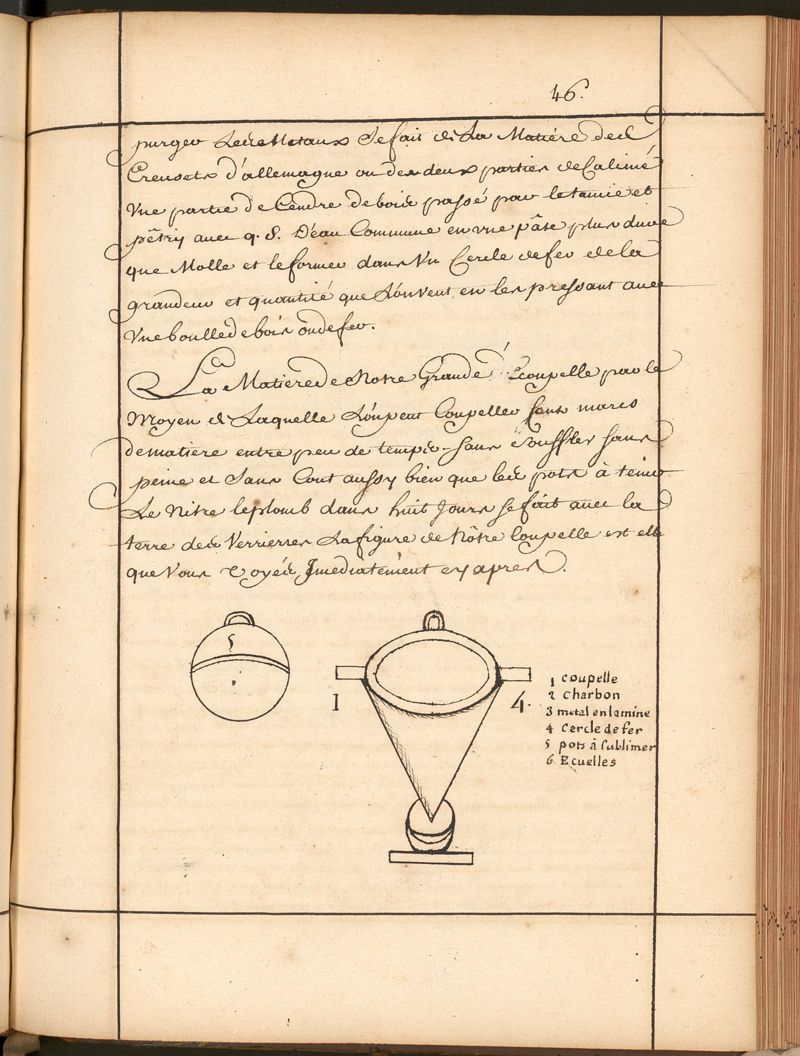 46.
purger Les Metaux Se fait de La Matiére des
Creusets d'allemagne ou des deux parties de Caliné
Vne partie de Cendre de bois passé par le tamis et
pêtry avec q. S. D'eau Commune en vne pâte plus dure
que Molle et le former dans Vn Cercle de fer de la
grandeur et quantité que L'on Veut en les pressant avec
Vne boulle de bois ou de fer.
La Matiere de Notre Grande Coupelle par le
Moyen de Laquelle L'on peut Coupeller Sent marcs
de matiere entre peu de temps Sans Souffler Sans
peine et Sans Cout aussy bien que les pots à tenir
Le Nitre le plomb dans huit Jours se fait avec la
terre des Verrieres La figure de Nôtre Coupelle est elle
que Vous Voyés Jmediatement cy apres.
5
1
4.
1 coupelle
2 charbon
3 metal en lamine
4 cercle de fer
5 pots à sublimer
6 Ecuelles